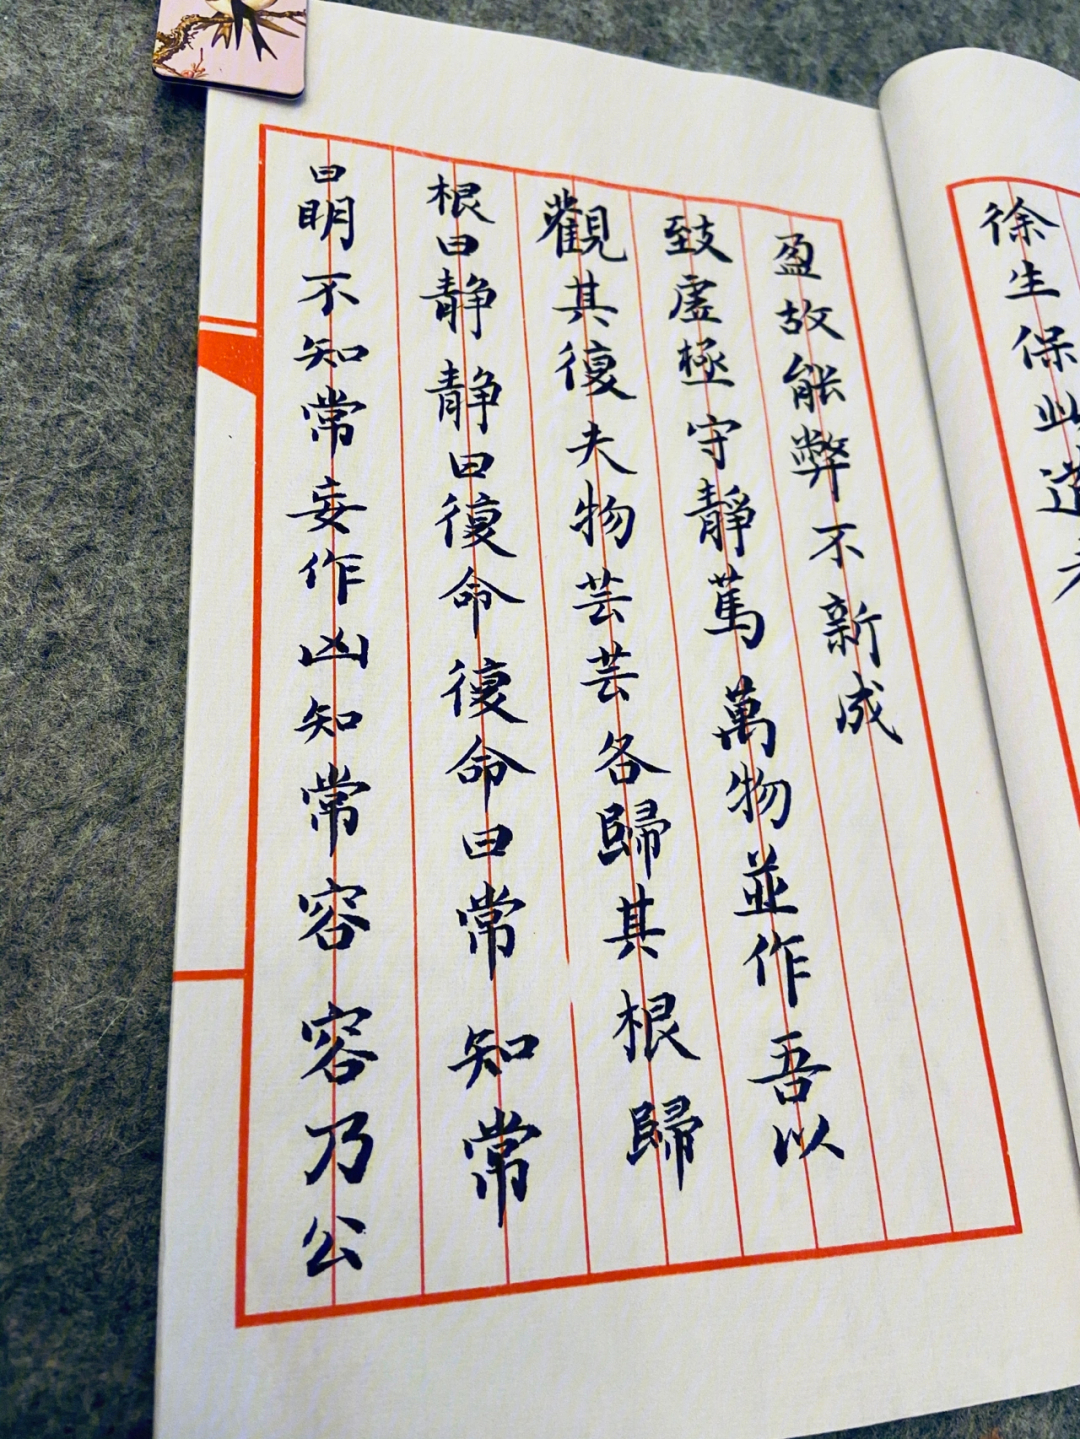 徐生保此道者
盈故能弊不新成
致虛極守靜篤萬物並作吾以
觀其復夫物芸芸各歸其根歸
根曰静静曰復命復命曰常知常
曰明不知常妄作凶知常容容乃公